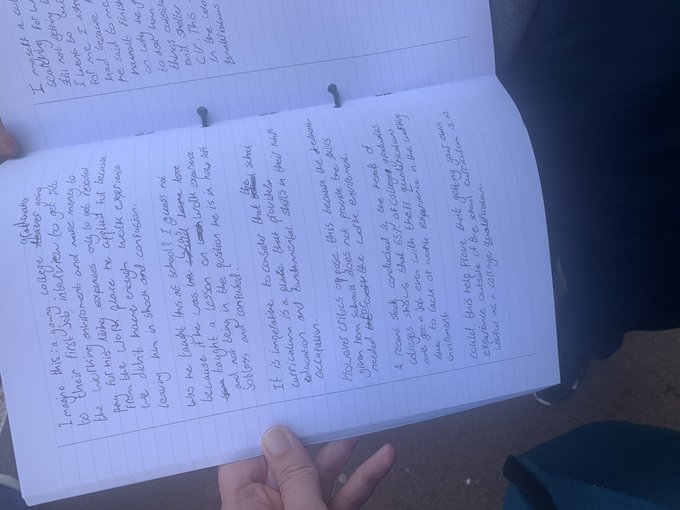 Imagine this a young college graduate going
to their first job interview to get into
the working enviroment and make money to
pay for his living expenses only to get rejected
from the work place he applied for because
he didn't have enough work experience
leaving him in shock and confusion.
Was he taught this at school? I guess not
because if he was he would have
taught a lesson on work experience
and not being in the position he is in now left
jobless and confused.
It is imperative to consider that the school
curriculum is a place that provides
education and fundamental skills in their future
occupation.
However critics oppose this because the education
given from schools does not provide the skills
needed for the work enviroment.
A recent study conducted by the heads of
colleges shows that 65% of college graduates
dont get a job even with their qualifications
due to lack of work experience in the working
enviroment
could this help prove that getting your own
experience outside of the school curriculum is as
useful as a college qualification.
I myself a coll
searching for w
still not getting
I went to a
for me I ask
had because
he said to me
on why
to ask
things
and
CV. This
in the
qualifications